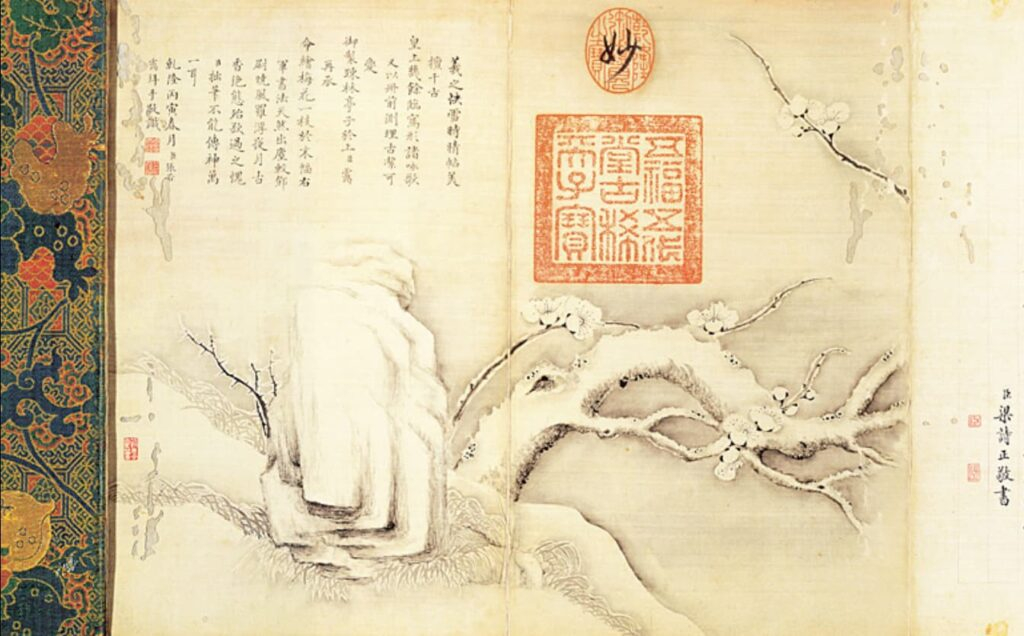 臣梁詩正敬書
妙
五福五代
堂古稀
天子寶
羲之快雪時晴帖
擅千古
皇上幾餘臨寫形諸詠歌
又以冊前側理古潔可
愛
御製疎林亭子於上
再承
命繪梅花一枝於末幅右
軍書法天然出塵
曉風羅浮夜月古
香艷態殆欲過之愧
臣拙筆不能傳神萬
一耳
乾隆丙寅春月臣張若
靄拜手敬識